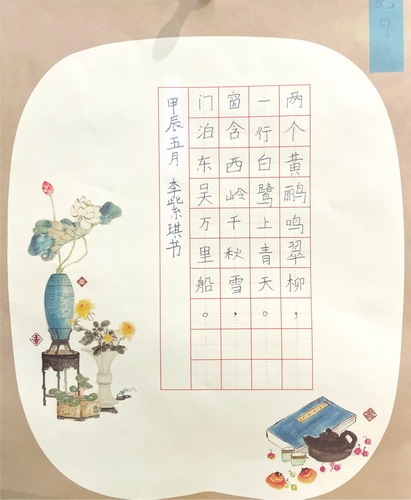 绝句
两个黄鹂鸣翠柳，
一行白鹭上青天。
窗含西岭千秋雪，
门泊东吴万里船。
甲辰五月 李紫琪书